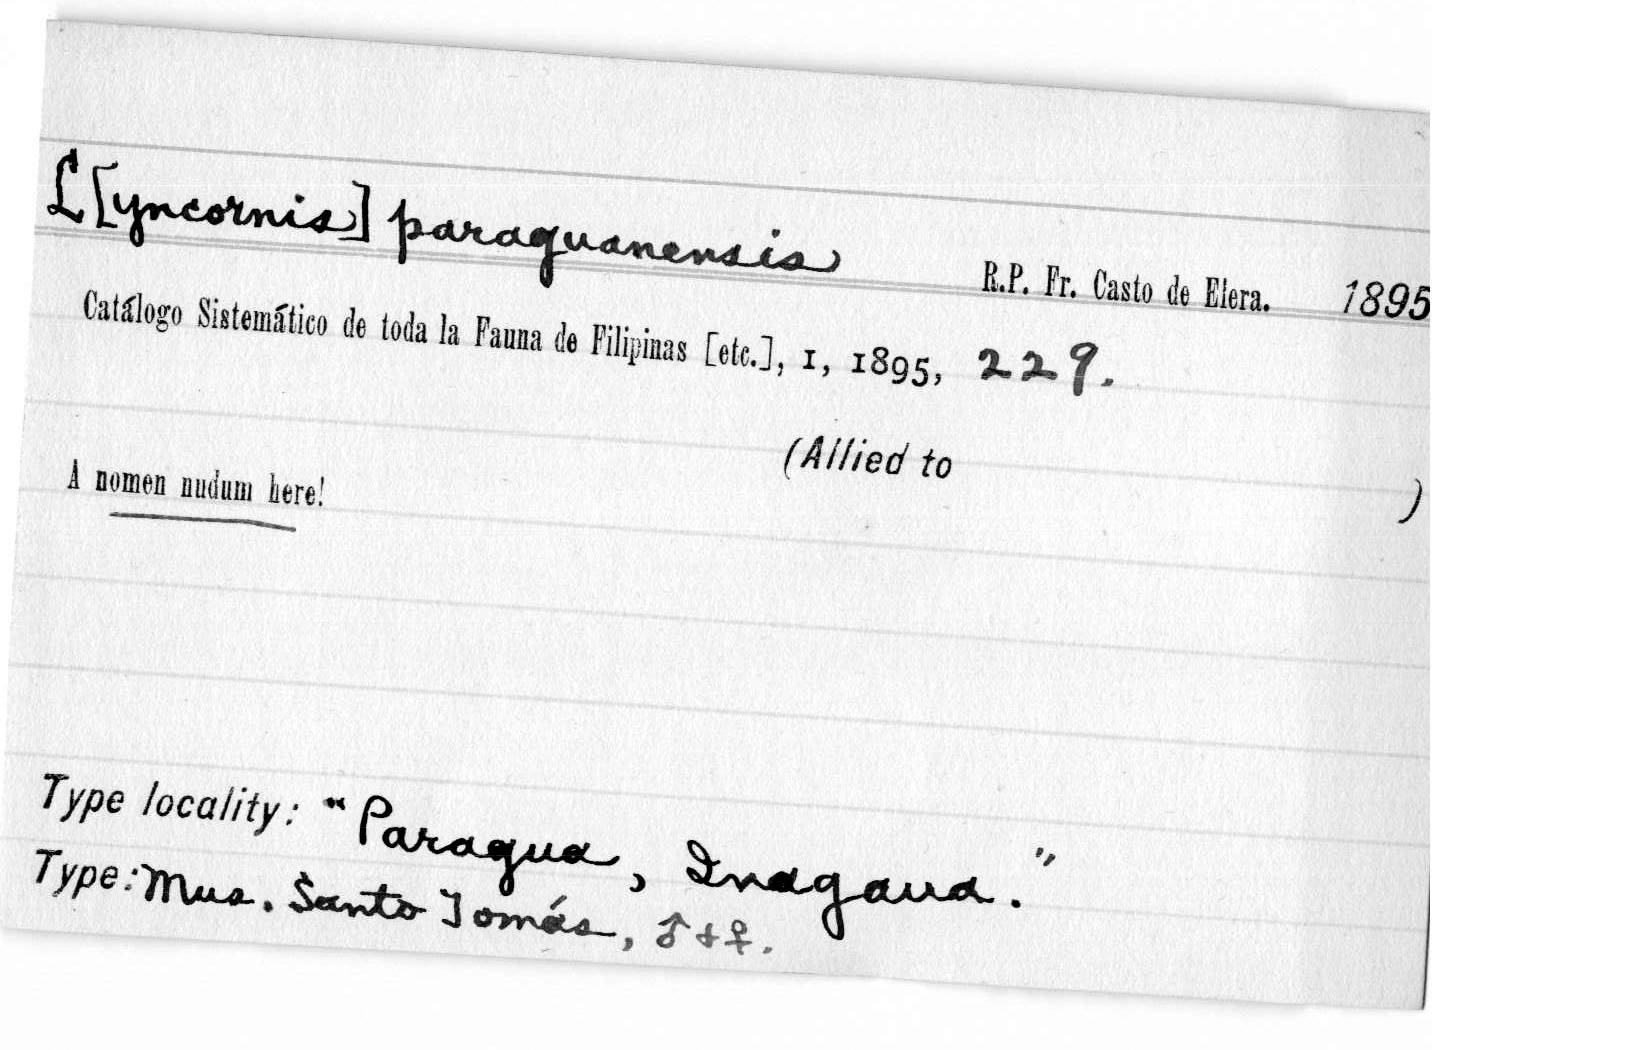 L[yncornis] paraguanensis R.P. Fr. Casto de Elera. 1895
Catálogo Sistemático de toda la Fauna de Filipinas [etc.], 1, 1895, 229.
(Allied to )
A nomen nudum here!
Type locality: "Paragua, Inagaua."
Type: Mus. Santo Tomás, ♂ + ♀.